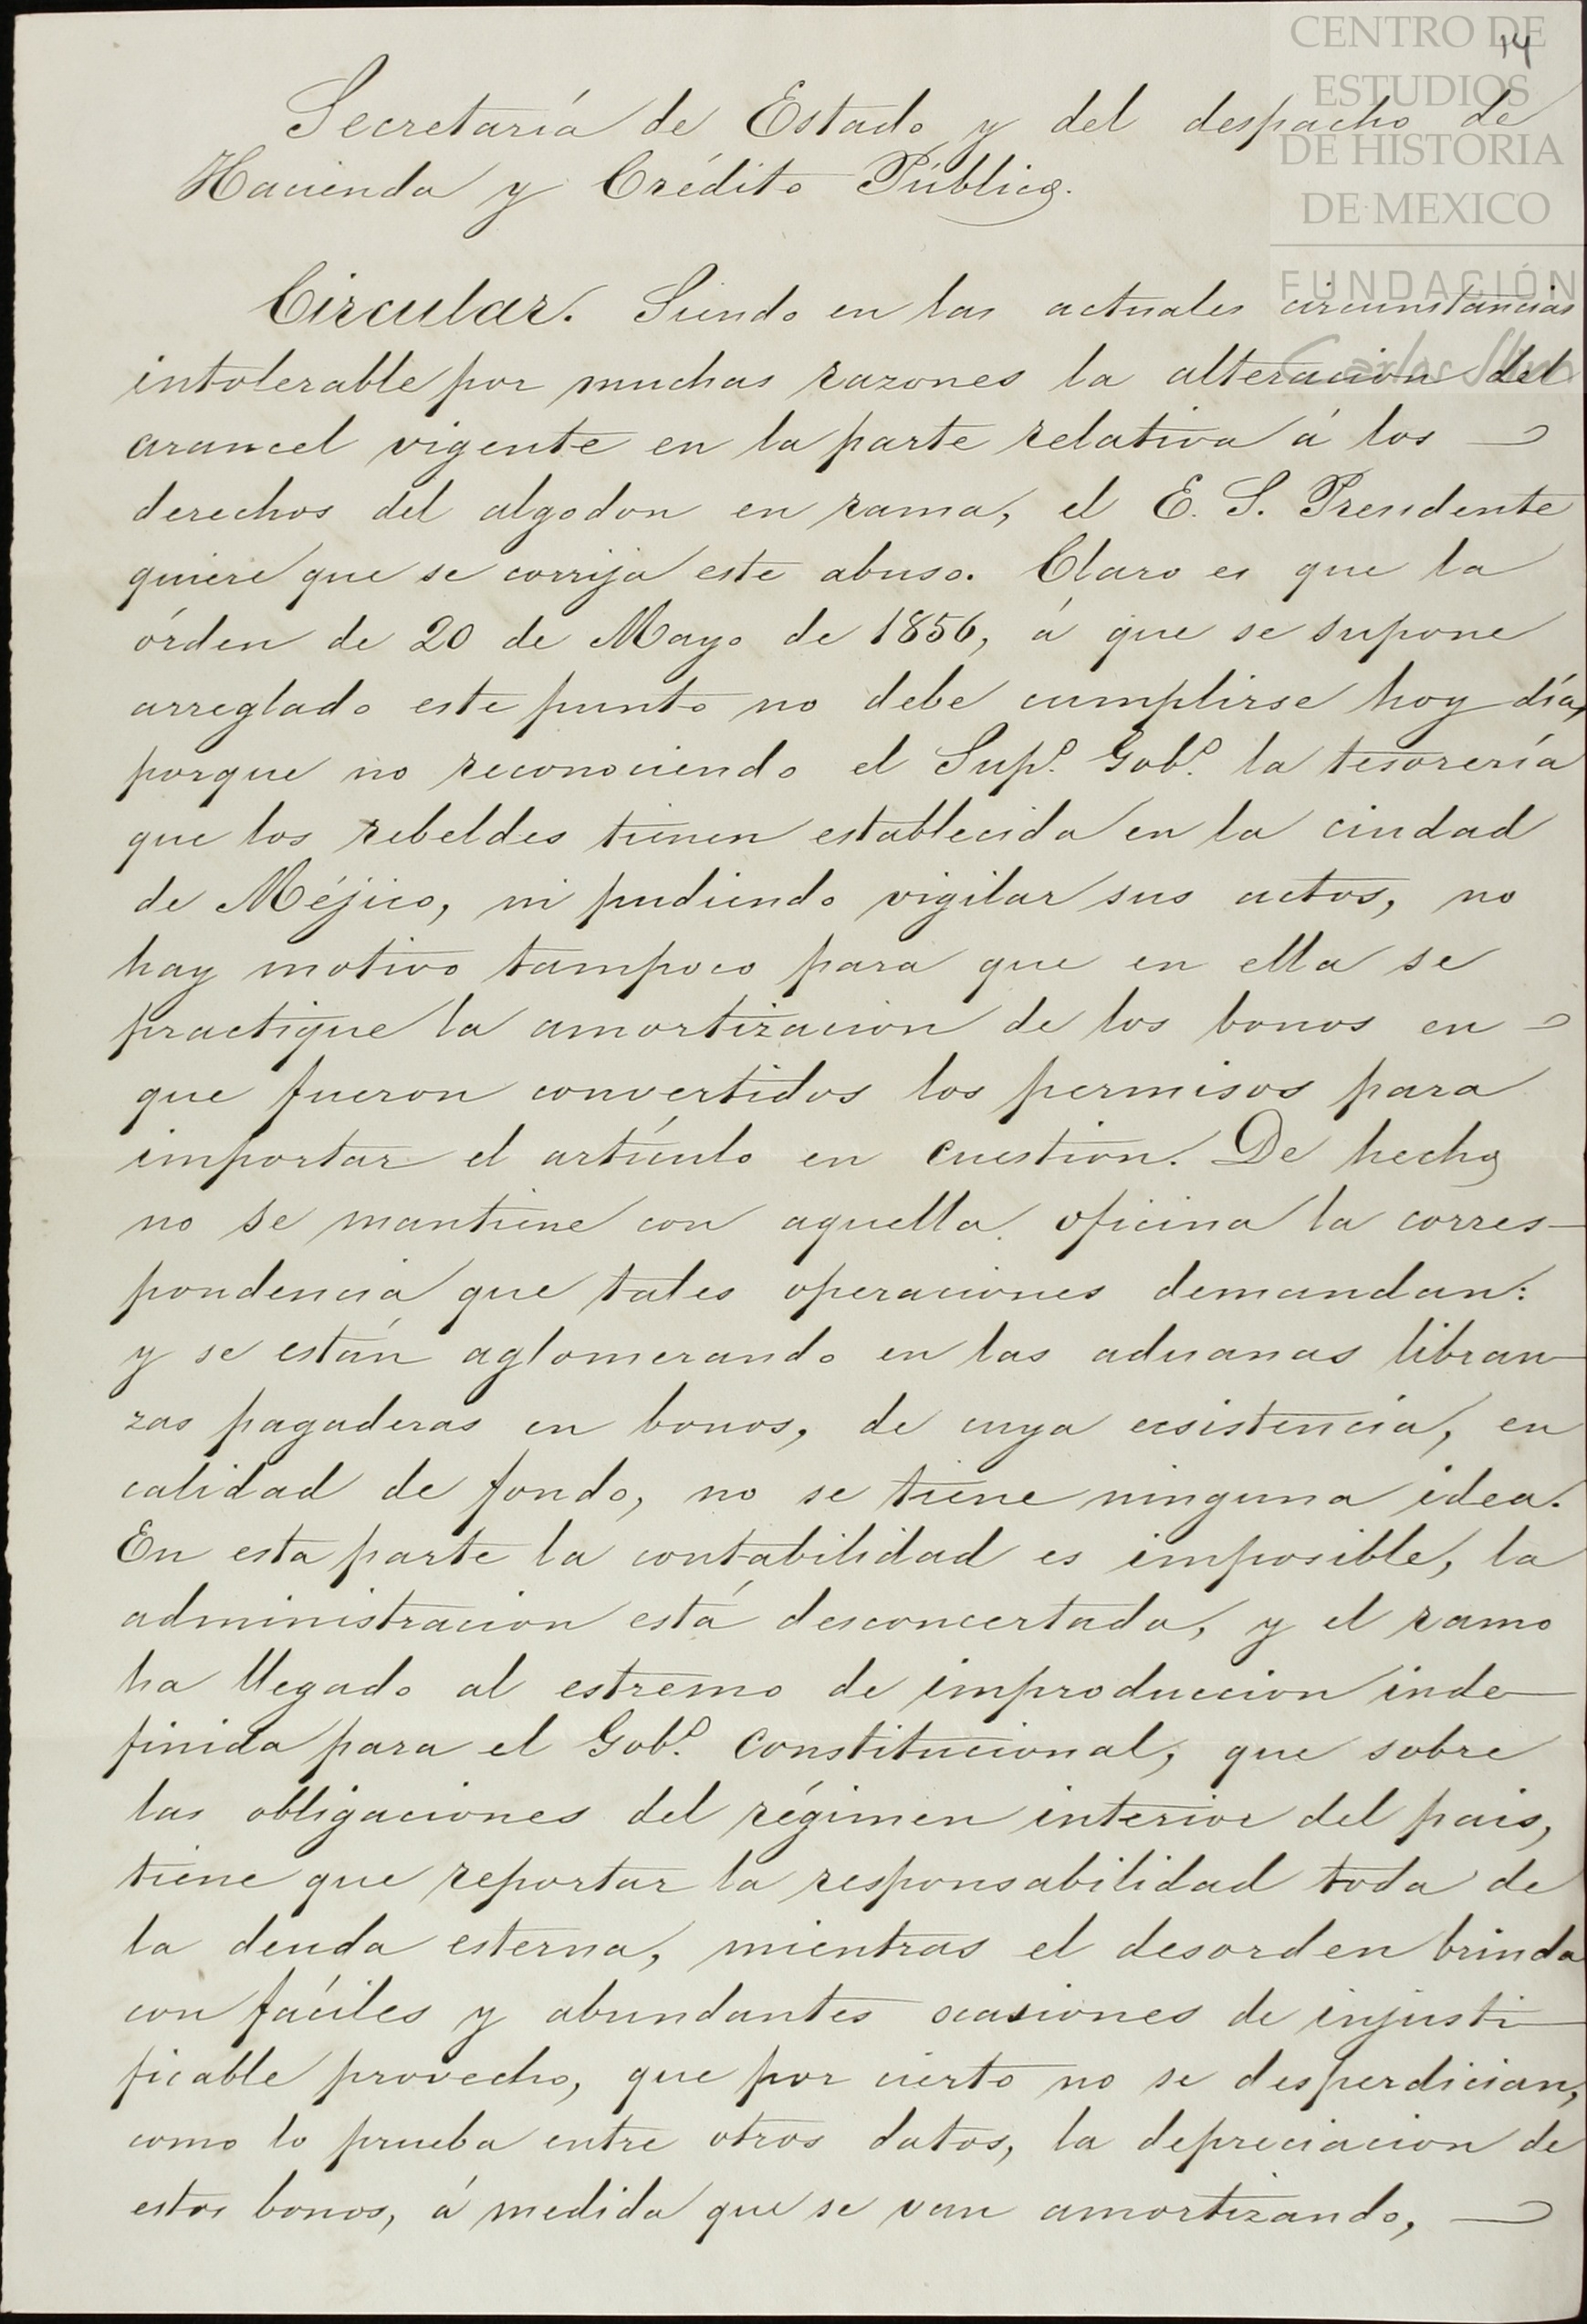 CENTRO DE
ESTUDIOS
DE HISTORIA
DE MEXICO
FUNDACIÓN
Carlos Slim
14
Secretaría de Estado y del despacho de
Hacienda y Crédito Público.
Circular. Siendo en las actuales circunstancias
intolerable por muchas razones la alteracion del
arancel vigente en la parte relativa á los
derechos del algodon en rama, el E. S. Presidente
quiere que se corrija este abuso. Claro es que la
órden de 20 de Mayo de 1856, á que se supone
arreglado este punto no debe cumplirse hoy día,
porque no reconociendo el Sup.º Gob.º la tesorería
que los rebeldes tienen establecida en la ciudad
de Méjico, ni pudiendo vigilar sus actos, no
hay motivo tampoco para que en ella se
practique la amortizacion de los bonos en
que fueron convertidos los permisos para
importar el artículo en cuestion. De hecho
no se mantiene con aquella oficina la corres-
pondencia que tales operaciones demandan:
y se están aglomerando en las aduanas libran-
zas pagaderas en bonos, de cuya ecsistencia, en
calidad de fondo, no se tiene ninguna idea.
En esta parte la contabilidad es imposible, la
administracion está desconcertada, y el ramo
ha llegado al estremo de improduccion inde-
finida para el Gob.º Constitucional, que sobre
las obligaciones del régimen interior del pais,
tiene que reportar la responsabilidad toda de
la deuda esterna, mientras el desorden brinda
con fáciles y abundantes ocasiones de injusti-
ficable provecho, que por cierto no se desperdician,
como lo prueba entre otros datos, la depreciacion de
estos bonos, á medida que se van amortizando,